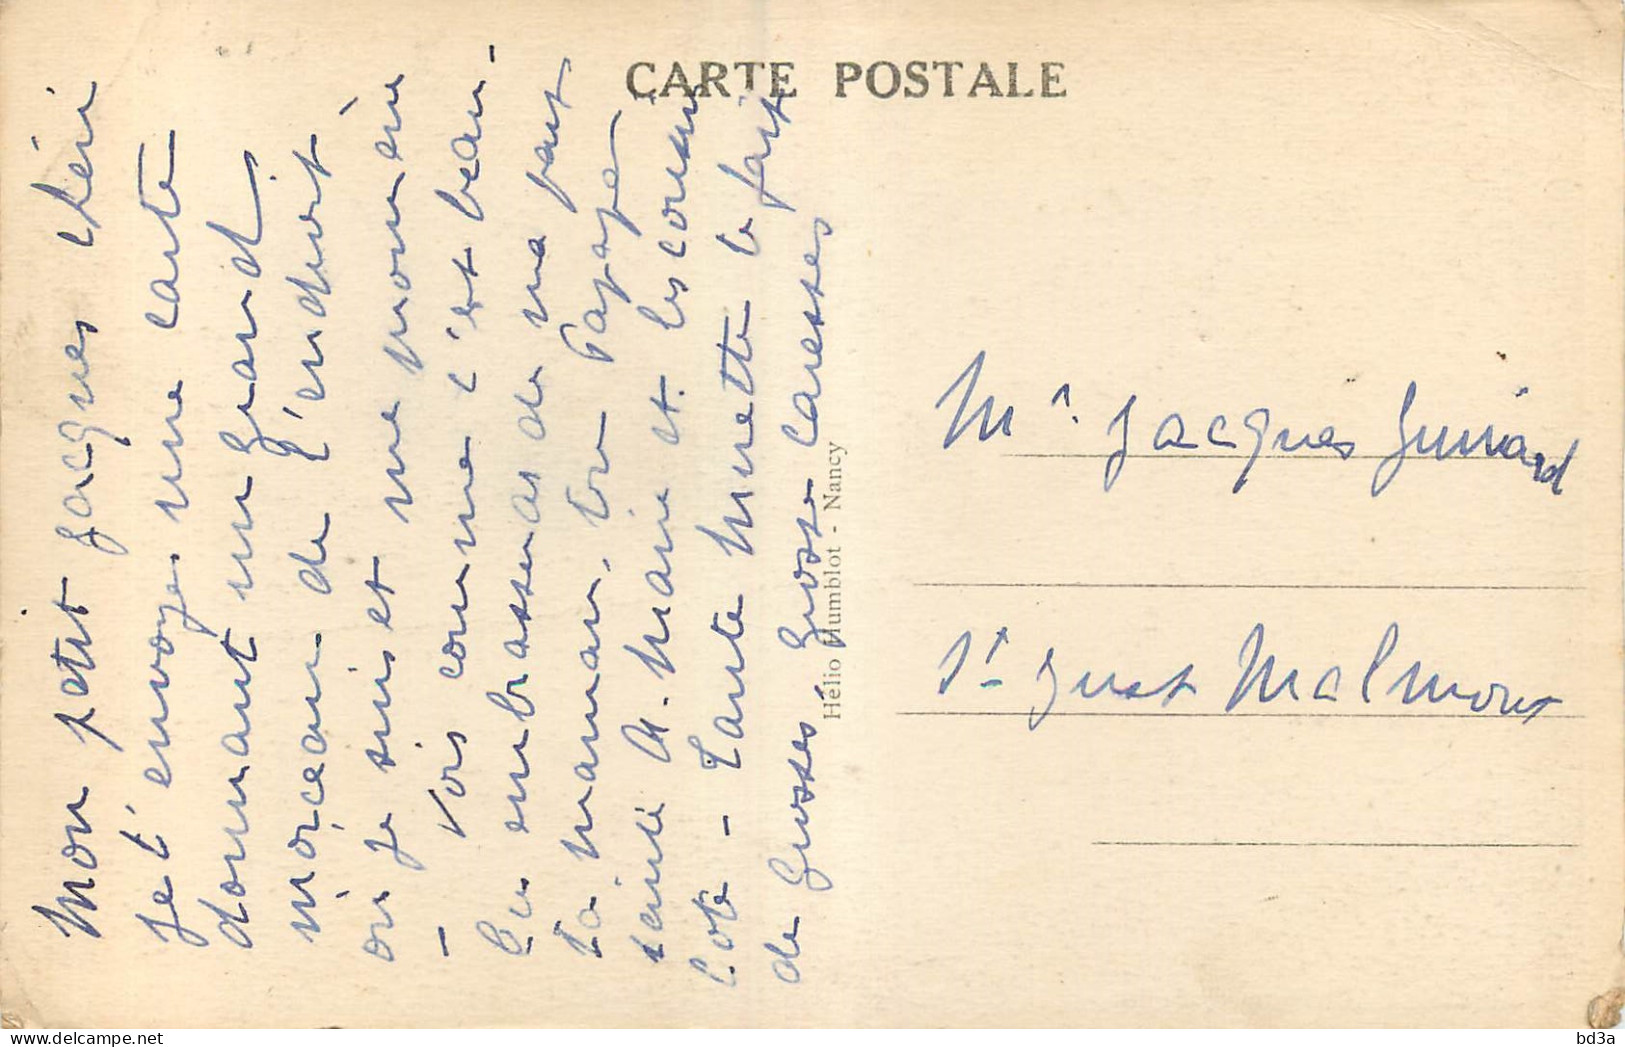 CARTE POSTALE
Mon petit Jacques chéri
Je t'envoye une carte
donnant un grand
morceau de l'endroit
où je suis et me promène
- Vois comme c'est beau -
Tu embrasseras de ma part
ta maman, ton Papa
tante A. Marie et les cousins
Coté - Tante Minette te fait
de Grosses Grosses Caresses
Hélio Humblot - Nancy
Mr. Jacques
St Just Malmont
bd3a